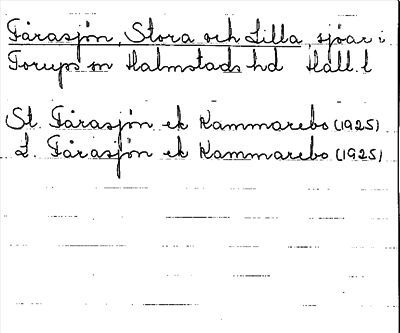 Fårasjön, Stora och Lilla, sjöar i
Torups sn Halmstads hd Hall. l
St. Fårasjön ek Kammarebo (1925)
L. Fårasjön ek Kammarebo (1925)